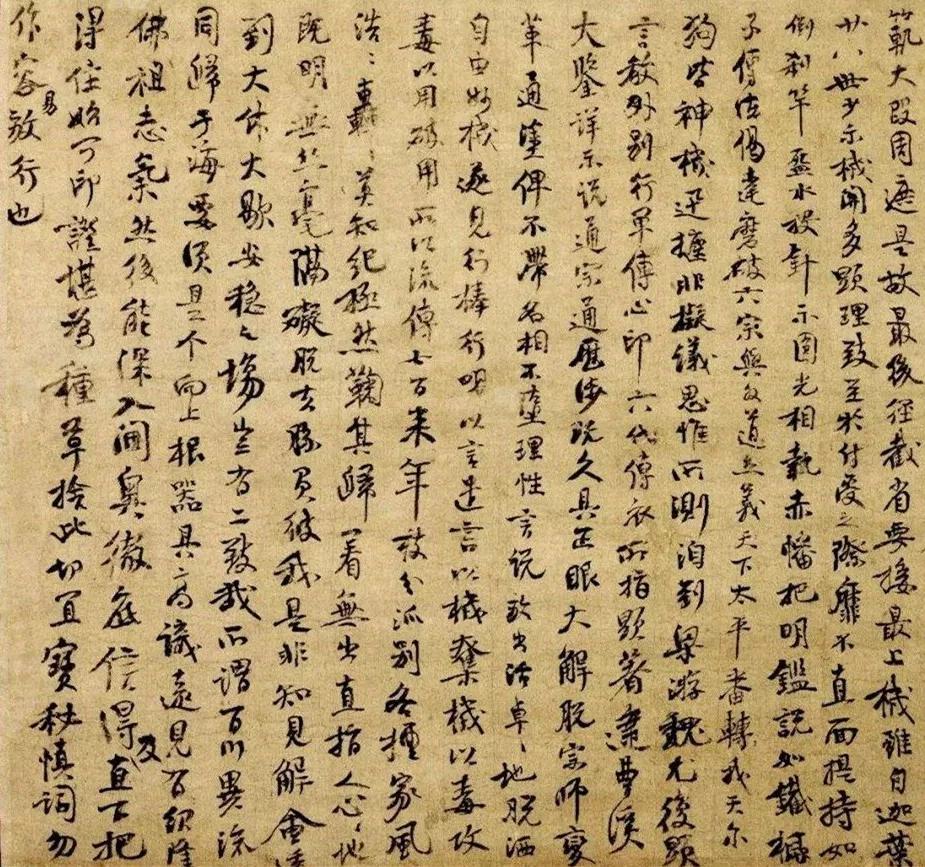 範大段周遮是故最後徑截省要接最上機雖自迦葉
廿八世少示機關多顯理致至於付受之際靡不直面提持如
倒刹竿盋水投針示圓光相執赤幡把明鑑說如鐵橛
子傳法偈達磨破六宗與外道立義天下太平番轉我天尔
狗皆神機迅捷非擬議思惟所測洎到梁游魏尤復顯
言教外別行單傳心印六代傳衣所指顯著逮曹溪
大鑒詳示說通宗通歷涉既久具正眼大解脫宗師變
革通塗俾不滯名相不墮理性言說放出活卓〻地脫洒
自由妙機遂見行棒行喝以言遣言以機奪機以毒攻
毒以用破用所以流傳七百來年枝分派別各擅家風
浩〻轟〻莫知紀極然鞠其歸著無出直指人心〻地
既明無絲毫隔礙脫去勝負彼我是非知見解會透
到大休大歇安穩之場豈有二致哉所謂百川異流
同歸于海要須是个向上根器具高識遠見有紹隆
佛祖志氣然後能深入閫奧徹底信得及直下把
得住始可印證堪為種草捨此切宜寶秘慎詞勿
作容易放行也